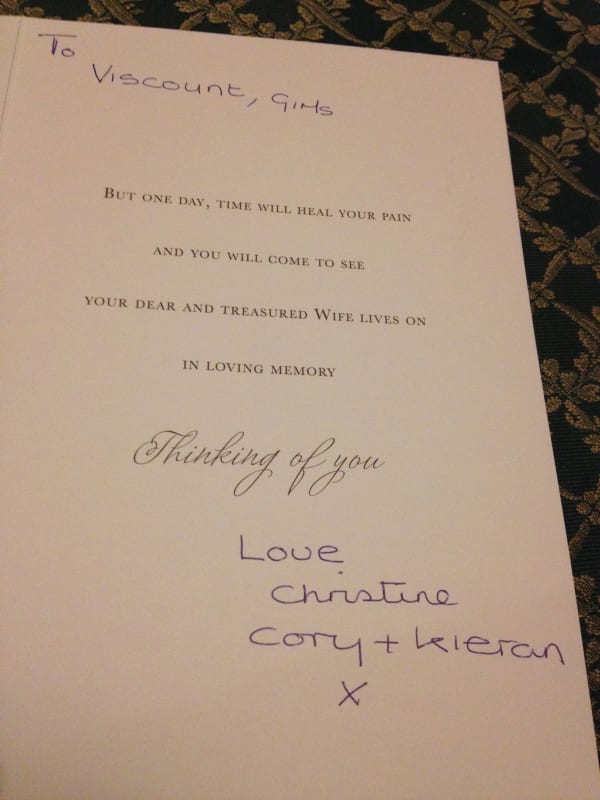 To
Viscount, Girls
But one day, time will heal your pain
and you will come to see
your dear and treasured Wife lives on
in loving memory
Thinking of you
Love
Christine
Cory + Kieran
X